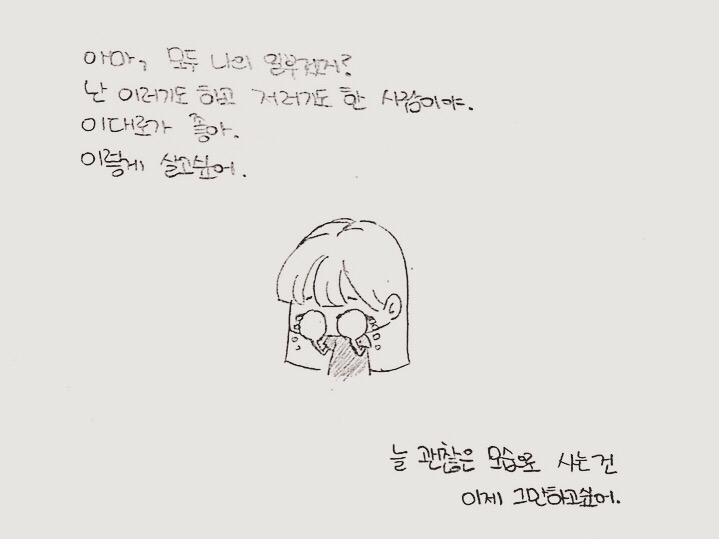 아마, 모두 나의 일부겠지?
난 이러기도 하고 저러기도 한 사람이야.
이대로가 좋아.
이렇게 살고싶어.
늘 괜찮은 모습으로 사는건
이제 그만하고싶어.